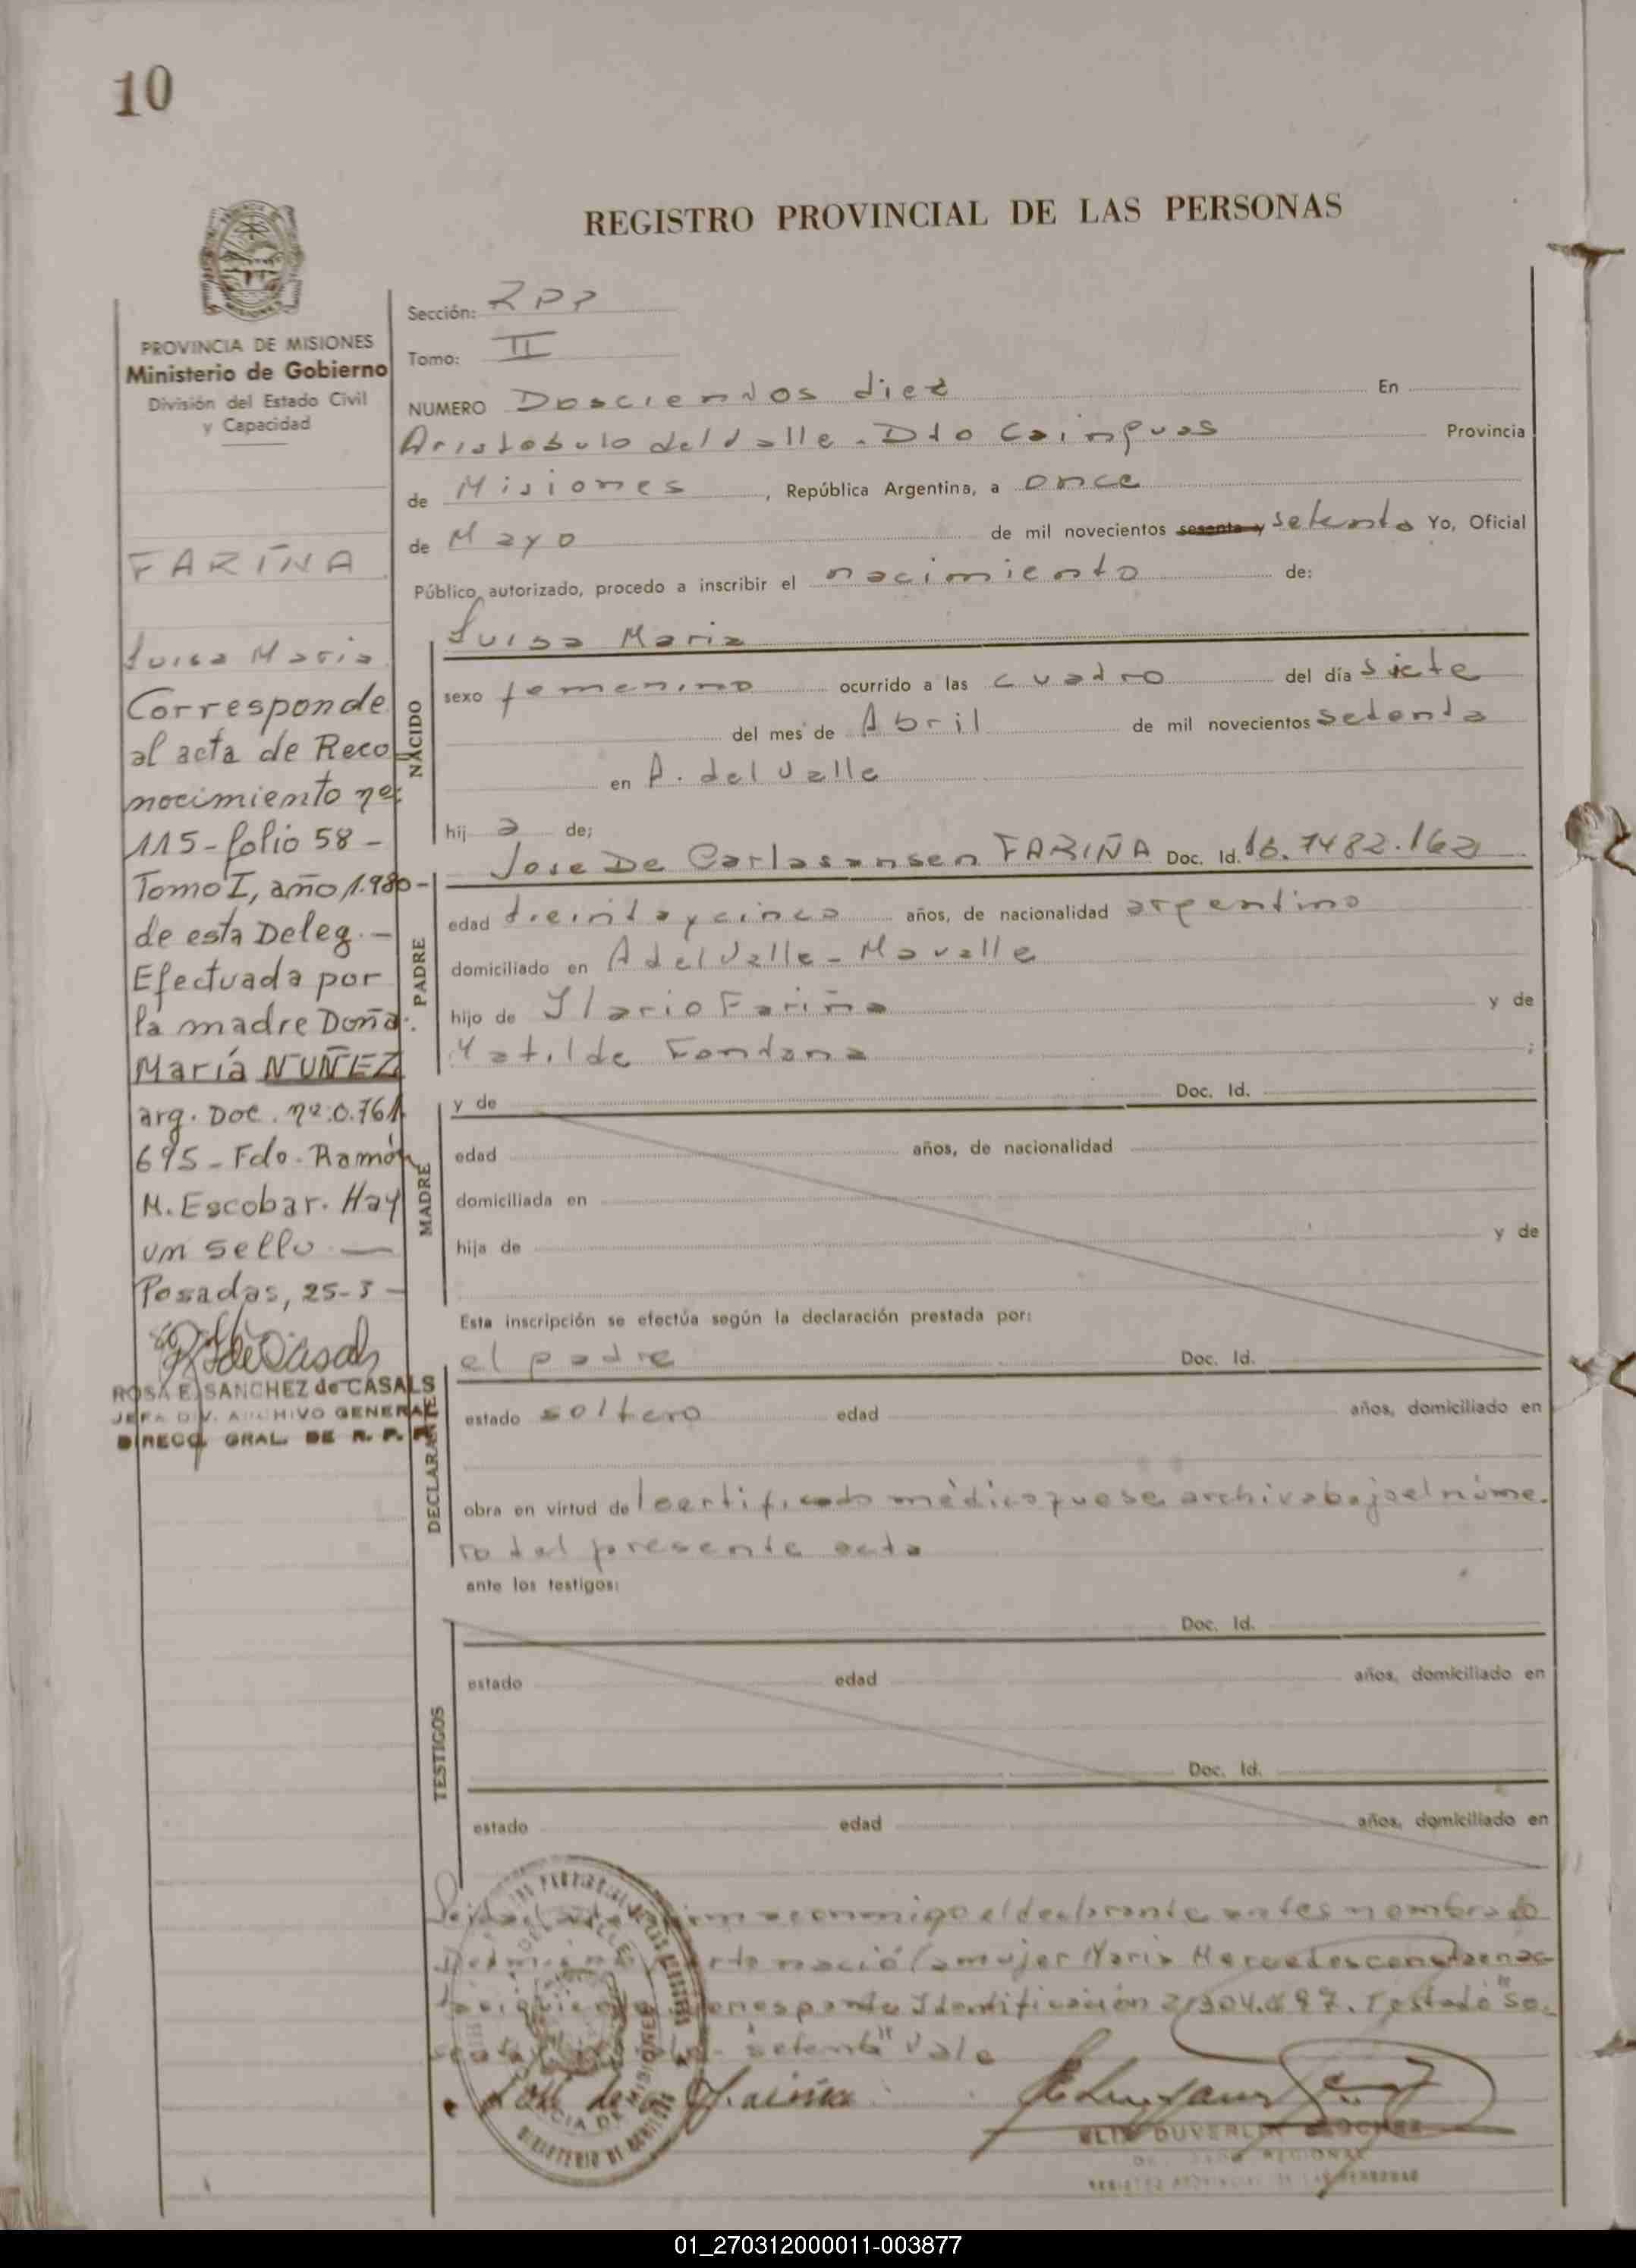 10
REGISTRO PROVINCIAL DE LAS PERSONAS
PROVINCIA DE MISIONES
Ministerio de Gobierno
División del Estado Civil
y Capacidad
FARIÑA
Luisa Maria
Corresponde
al acta de Reco
nocimiento nº
115 - folio 58 -
Tomo I, año 1.980 -
de esta Deleg. -
Efectuada por
la madre Doña:
María NUÑEZ
arg. Doc. nº 0.761
695 - Fdo. Ramón
M. Escobar. Hay
un sello —
Posadas, 25-3 -
ROSA E. SANCHEZ de CASALS
JEFA DIV. ARCHIVO GENERAL
DIRECC. GRAL. DE R. P. P.
Sección: RPP
Tomo: II
NUMERO Doscientos diez En
Aristobulo del Valle - Dto Cainguas Provincia
de Misiones, República Argentina, a once
de Mayo de mil novecientos sesenta y setenta Yo, Oficial
Público autorizado, procedo a inscribir el nacimiento de:
Luisa Maria
NACIDO
sexo femenino ocurrido a las cuatro del día siete
del mes de Abril de mil novecientos setenta
en A. del Valle
hij a de;
Jose De Carlasansen FARIÑA Doc. Id.
PADRE
edad treinta y cinco años, de nacionalidad argentino
domiciliado en A del Valle - Movalle
hijo de Ilario Fariña y de
Matilde Fontana ;
MADRE
y de Doc. Id.
edad años, de nacionalidad
domiciliada en
hija de y de
Esta inscripción se efectúa según la declaración prestada por:
el padre Doc. Id.
DECLARANTE
estado soltero edad años, domiciliado en
obra en virtud de l certificado médico que se archiva bajo el núme-
ro del presente acta
ante los testigos:
Doc. Id.
TESTIGOS
estado edad años, domiciliado en
Doc. Id.
estado edad años, domiciliado en
firma conmigo el declarante antes nombrado
nació la mujer Maria Mercedes
Identificación Testado "se-
"setenta" Vale
REGISTRO PROVINCIAL DE LAS PERSONAS
01_270312000011-003877